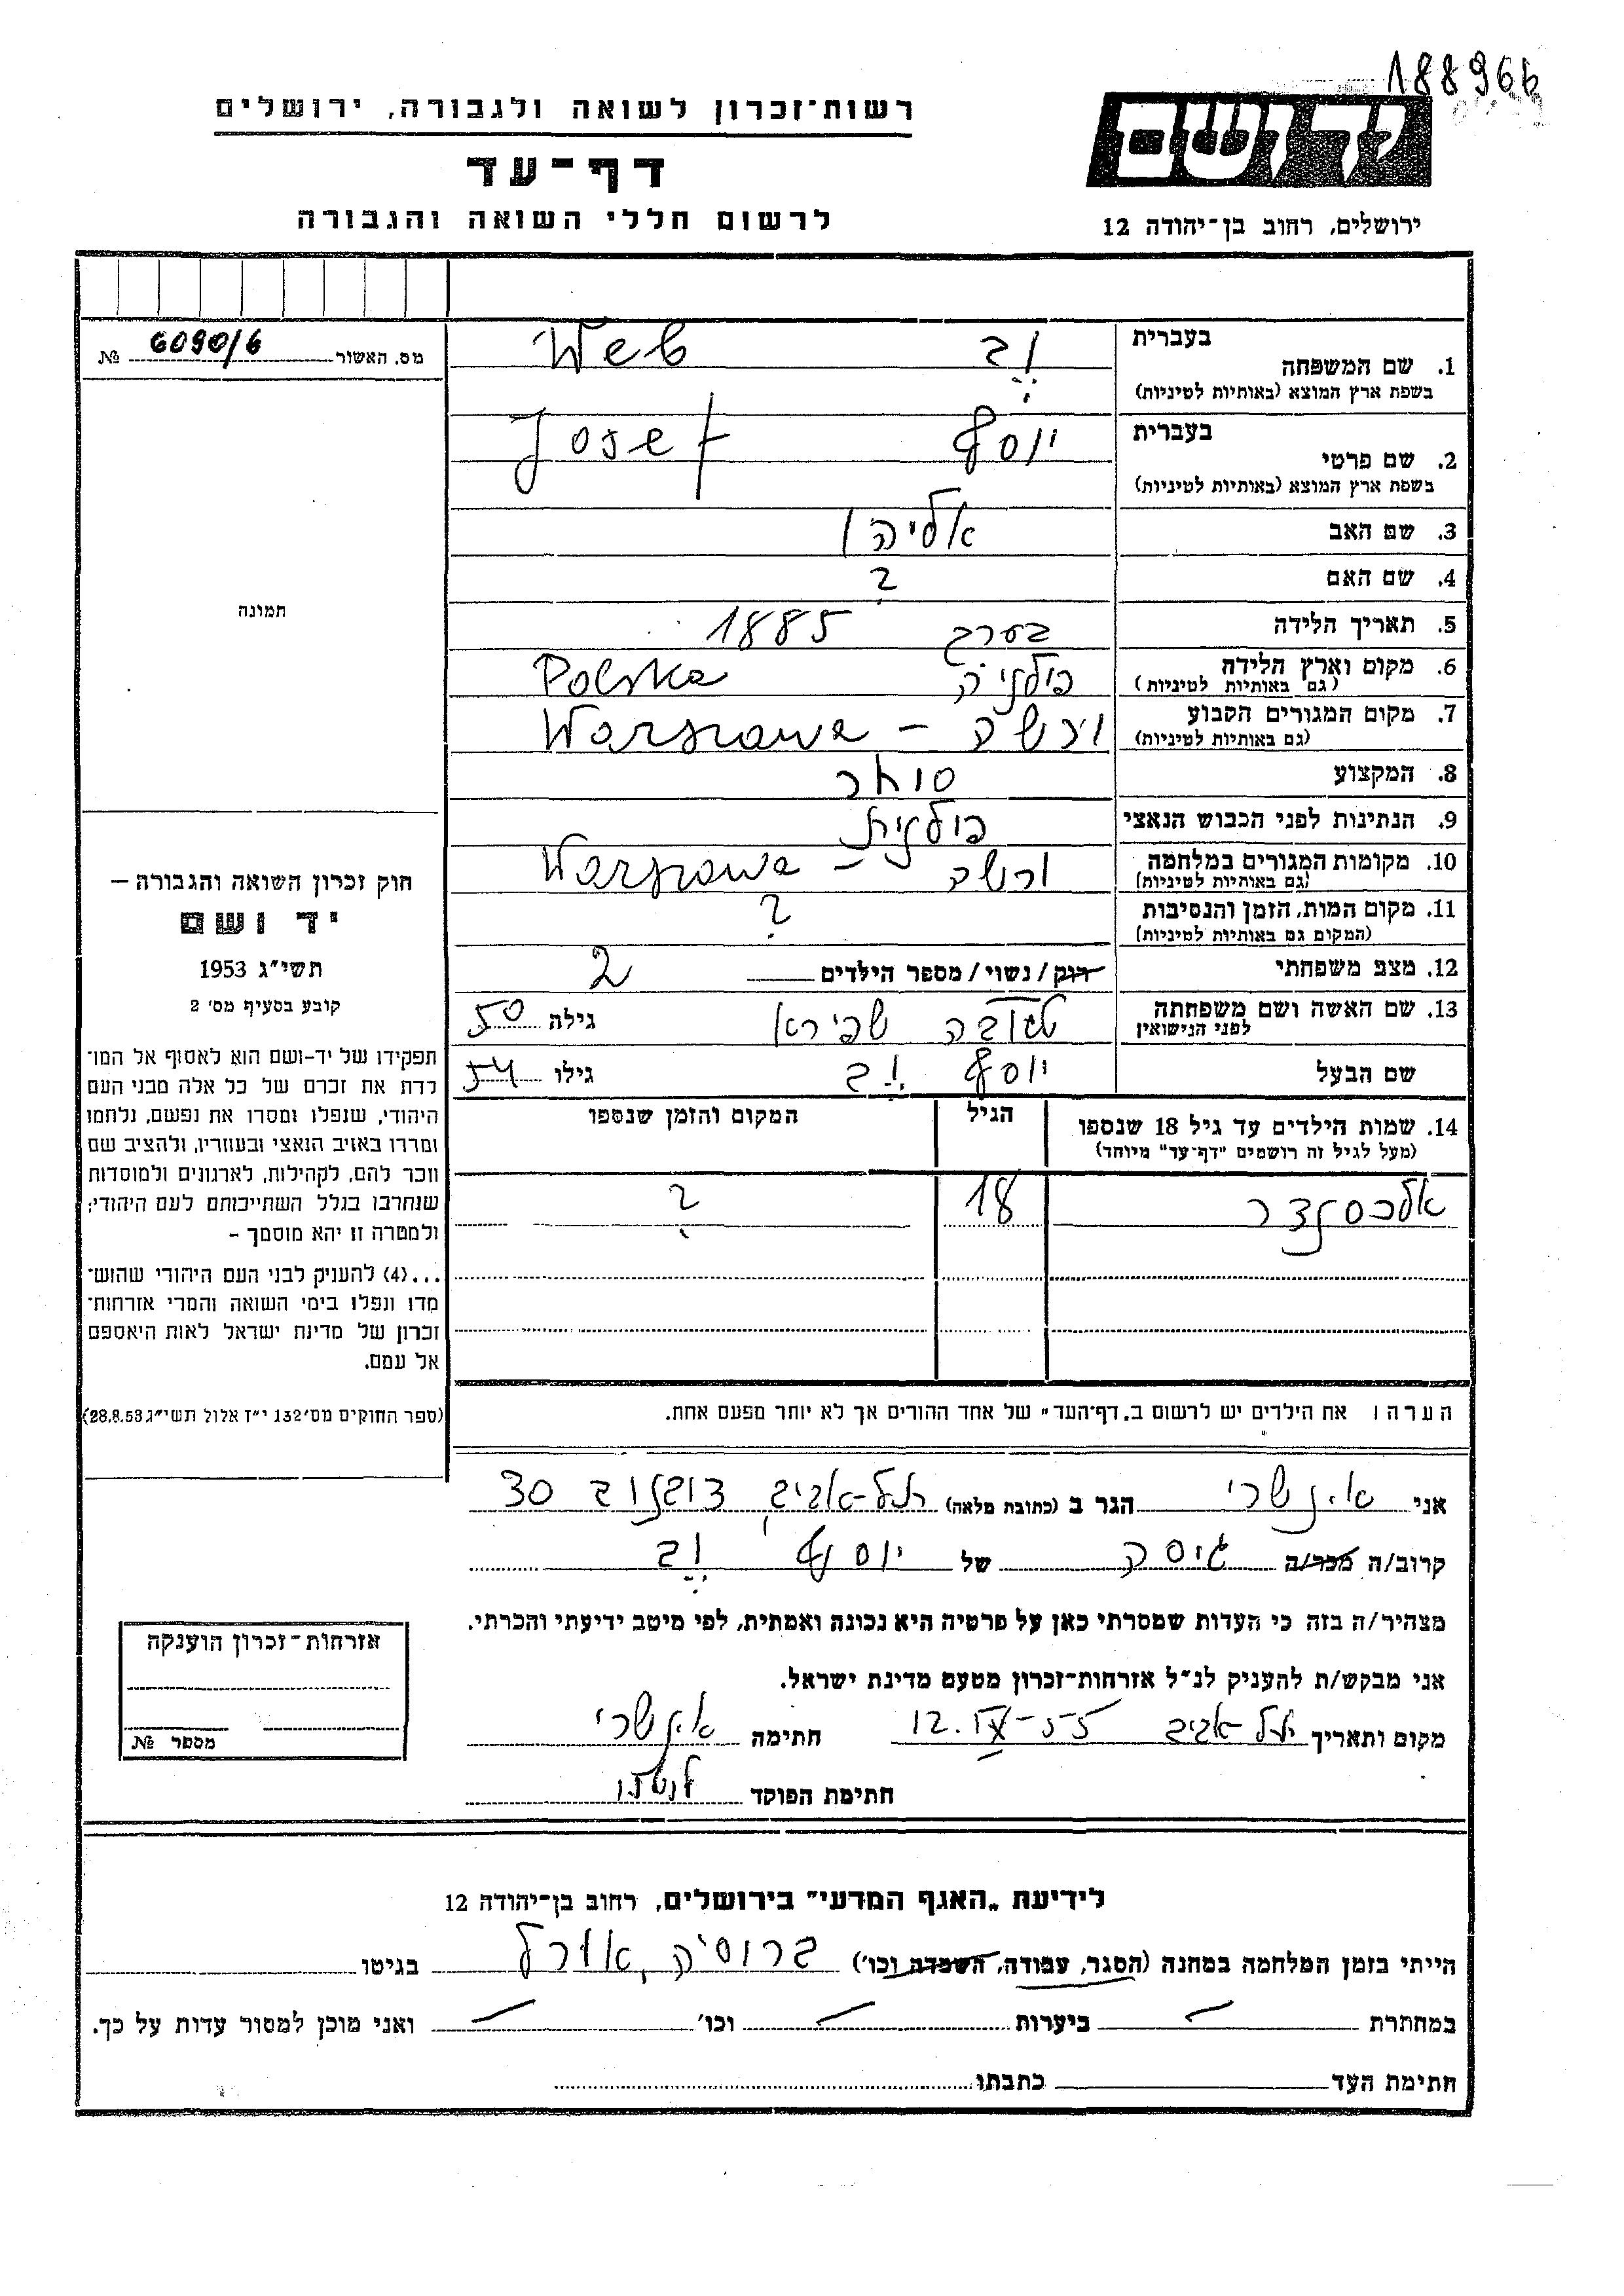 188966
רשות־זכרון לשואה ולגבורה, ירושלים
דף־עד
לרשום חללי השואה והגבורה
ידושם
ירושלים, רחוב בן־יהודה 12
מס. האשור 6090/6 №
תמונה
חוק זכרון השואה והגבורה —
יד ושם
תשי״ג 1953
קובע בסעיף מס׳ 2
תפקידו של יד-ושם הוא לאסוף אל המו־
לדת את זכרם של כל אלה מבני העם
היהודי, שנפלו ומסרו את נפשם, נלחמו
ומרדו באויב הנאצי ובעוזריו, ולהציב שם
וזכר להם, לקהילות, לארגונים ולמוסדות
שנחרבו בגלל השתייכותם לעם היהודי;
ולמטרה זו יהא מוסמך —
...(4) להעניק לבני העם היהודי שהוש־
מדו ונפלו בימי השואה והמרי אזרחות־
זכרון של מדינת ישראל לאות היאספם
אל עמם.
(ספר החוקים מס׳ 132 י״ז אלול תשי״ג 28.8.53)
בעברית
1. שם המשפחה וב Web
בשפת ארץ המוצא (באותיות לטיניות)
בעברית
2. שם פרטי יוסף Josef
בשפת ארץ המוצא (באותיות לטיניות)
3. שם האב אליהו
4. שם האם ?
5. תאריך הלידה בערך 1885
6. מקום וארץ הלידה פולניה Polska
(גם באותיות לטיניות)
7. מקום המגורים הקבוע ורשה – Warszawa
(גם באותיות לטיניות)
8. המקצוע סוחר
9. הנתינות לפני הכבוש הנאצי פולנית
10. מקומות המגורים במלחמה ורשה – Warszawa
(גם באותיות לטיניות)
11. מקום המות, הזמן והנסיבות ?
(המקום גם באותיות לטיניות)
12. מצב משפחתי רוק / נשוי / מספר הילדים 2
13. שם האשה ושם משפחתה שפירא גילה 50
לפני הנישואין
שם הבעל יוסף וב גילו 54
14. שמות הילדים עד גיל 18 שנספו הגיל המקום והזמן שנספו
(מעל לגיל זה רושמים "דף־עד" מיוחד)
אלכסנדר 18 ?
הערה ! את הילדים יש לרשום ב„דף־העד" של אחד ההורים אך לא יותר מפעם אחת.
אני הגר ב (כתובת מלאה) תל-אביב, דובנוב 30
קרוב/ה מכר/ה גיסה של יוסף וב
מצהיר/ה בזה כי העדות שמסרתי כאן על פרטיה היא נכונה ואמתית, לפי מיטב ידיעתי והכרתי.
אני מבקש/ת להעניק לנ״ל אזרחות־זכרון מטעם מדינת ישראל.
מקום ותאריך תל-אביב 12.IX-55 חתימה
חתימת הפוקד
אזרחות־זכרון הוענקה
מספר №
לידיעת „האגף המדעי" בירושלים, רחוב בן־יהודה 12
הייתי בזמן המלחמה במחנה (הסגר, עבודה, השמדה וכו׳) ברוסיה, אורל בגיטו
במחתרת — ביערות — וכו׳ — ואני מוכן למסור עדות על כך.
חתימת העד כתבתו